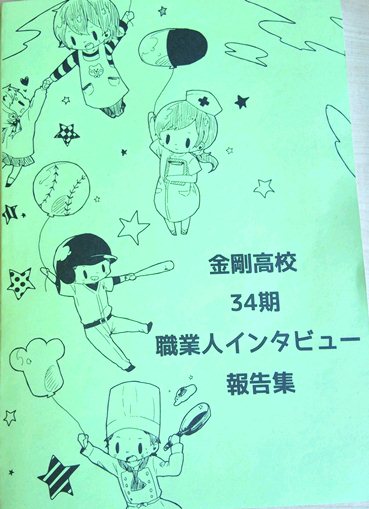 金剛高校
34期
職業人インタビュー
報告集